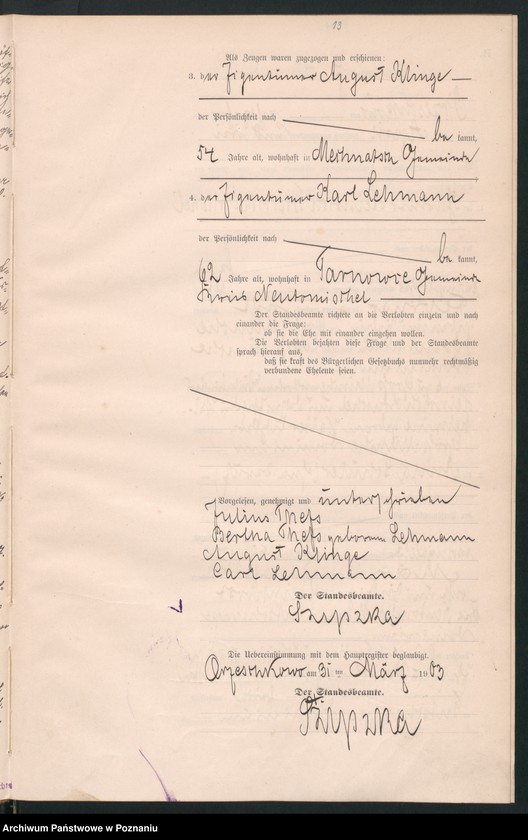 13
Als Zeugen waren zugezogen und erschienen:
3. der Eigentümer August Klinge
der Persönlichkeit nach
be kannt,
54 Jahre alt, wohnhaft in Gemeinde
4. der Eigentümer Karl Lehmann
der Persönlichkeit nach
be kannt,
62 Jahre alt, wohnhaft in Tarnowce Gemeinde
Kreis Neutomischel
Der Standesbeamte richtete an die Verlobten einzeln und nach
einander die Frage:
ob sie die Ehe mit einander eingehen wollen.
Die Verlobten bejahten diese Frage und der Standesbeamte
sprach hierauf aus,
daß sie kraft des Bürgerlichen Gesetzbuchs nunmehr rechtmäßig
verbundene Eheleute seien.
Vorgelesen, genehmigt und unterschrieben
Julius
Bertha geborene Lehmann
August Klinge
Carl Lehmann
Der Standesbeamte.
Die Uebereinstimmung mit dem Hauptregister beglaubigt.
am 31 ten März 1903
Der Standesbeamte.
Archiwum Państwowe w Poznaniu